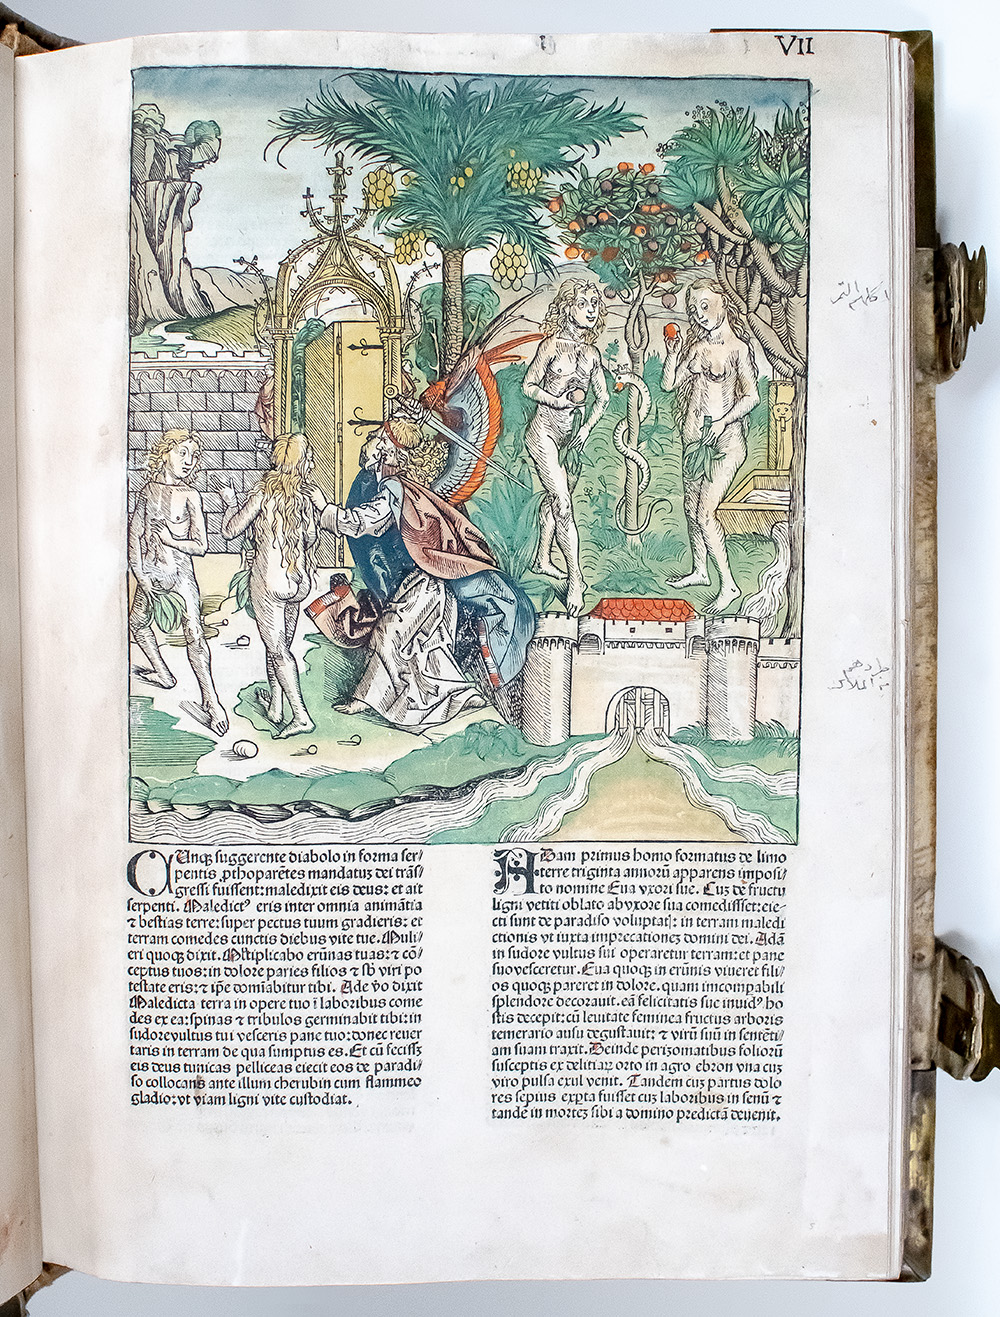 VII
CUnqꝫ suggerente diabolo in forma ser/
pentis ꝓthoparẽtes mandatuʒ dei trãſ/
greſſi fuiſſent: maledixit eis deus: et ait
ſerpenti. Maledictꝰ eris inter omnia animãtia
⁊ beſtias terre: ſuper pectus tuum gradieris: et
terram comedes cunctis diebus vite tue. Muli/
eri quoqꝫ dixit. Multiplicabo erũnas tuas: ⁊ cõ/
ceptus tuos: in dolore paries filios ⁊ ſb̃ viri po
teſtate eris: ⁊ ip̃e dominabitur tibi. Ade ṽo dixit
Maledicta terra in opere tuo ĩ laboribus come
des ex ea: ſpinas ⁊ tribulos germinabit tibi: in
ſudore vultus tui veſceris pane tuo: donec rever
taris in terram de qua ſumptus es. Et cũ feciſſʒ
eis deus tunicas pelliceas eiecit eos de paradi/
ſo collocans ante illum cherubin cum flammeo
gladio: vt viam ligni vite cuſtodiat.
ADam primus homo formatus de limo
terre triginta annorũ apparens impoſi/
to nomine Eua vxori ſue. Cuʒ de fructu
ligni vetiti oblato ab vxore ſua comediſſet: eie/
cti ſunt de paradiſo voluptatꝭ: in terram maledi
ctionis vt iuxta imprecationeʒ domini dei. Adã
in ſudore vultus ſui operaretur terram: et pane
ſuo veſceretur. Eua quoqꝫ in erũnis viueret fili/
os quoqꝫ pareret in dolore. quam incomꝑabili
ſplendore decorauit. eã felicitatis ſue inuidꝰ ho
ſtis decepit: cũ leuitate feminea fructus arboris
temerario auſu deguſtauit: ⁊ virũ ſuũ in ſentẽti/
am ſuam traxit. Deinde perizomatibus foliorũ
ſuſceptis ex delitiaꝝ orto in agro ebron vna cuʒ
viro pulſa exul venit. Tandem cuʒ partus dolo
res ſepius exꝑta fuiſſet cuʒ laboribus in ſeniũ ⁊
tandẽ in morteʒ ſibi a domino predictã deuenit.